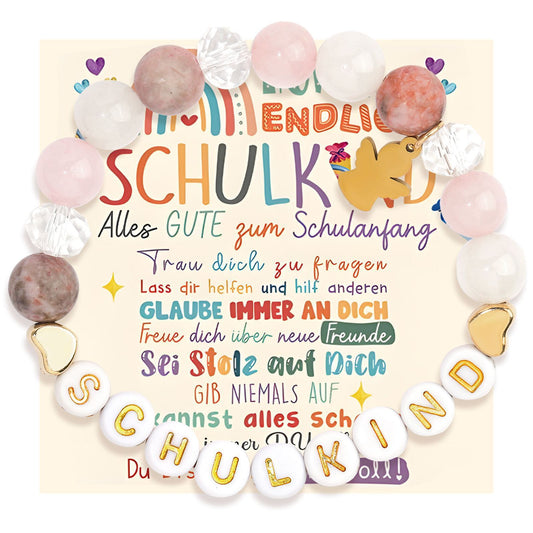 ENDLICH
SCHULKIND
Alles GUTE zum Schulanfang
Trau dich zu fragen
Lass dir helfen und hilf anderen
GLAUBE IMMER AN DICH
Freue dich über neue Freunde
Sei Stolz auf Dich
GIB NIEMALS AUF
kannst alles
Du
SCHULKIND